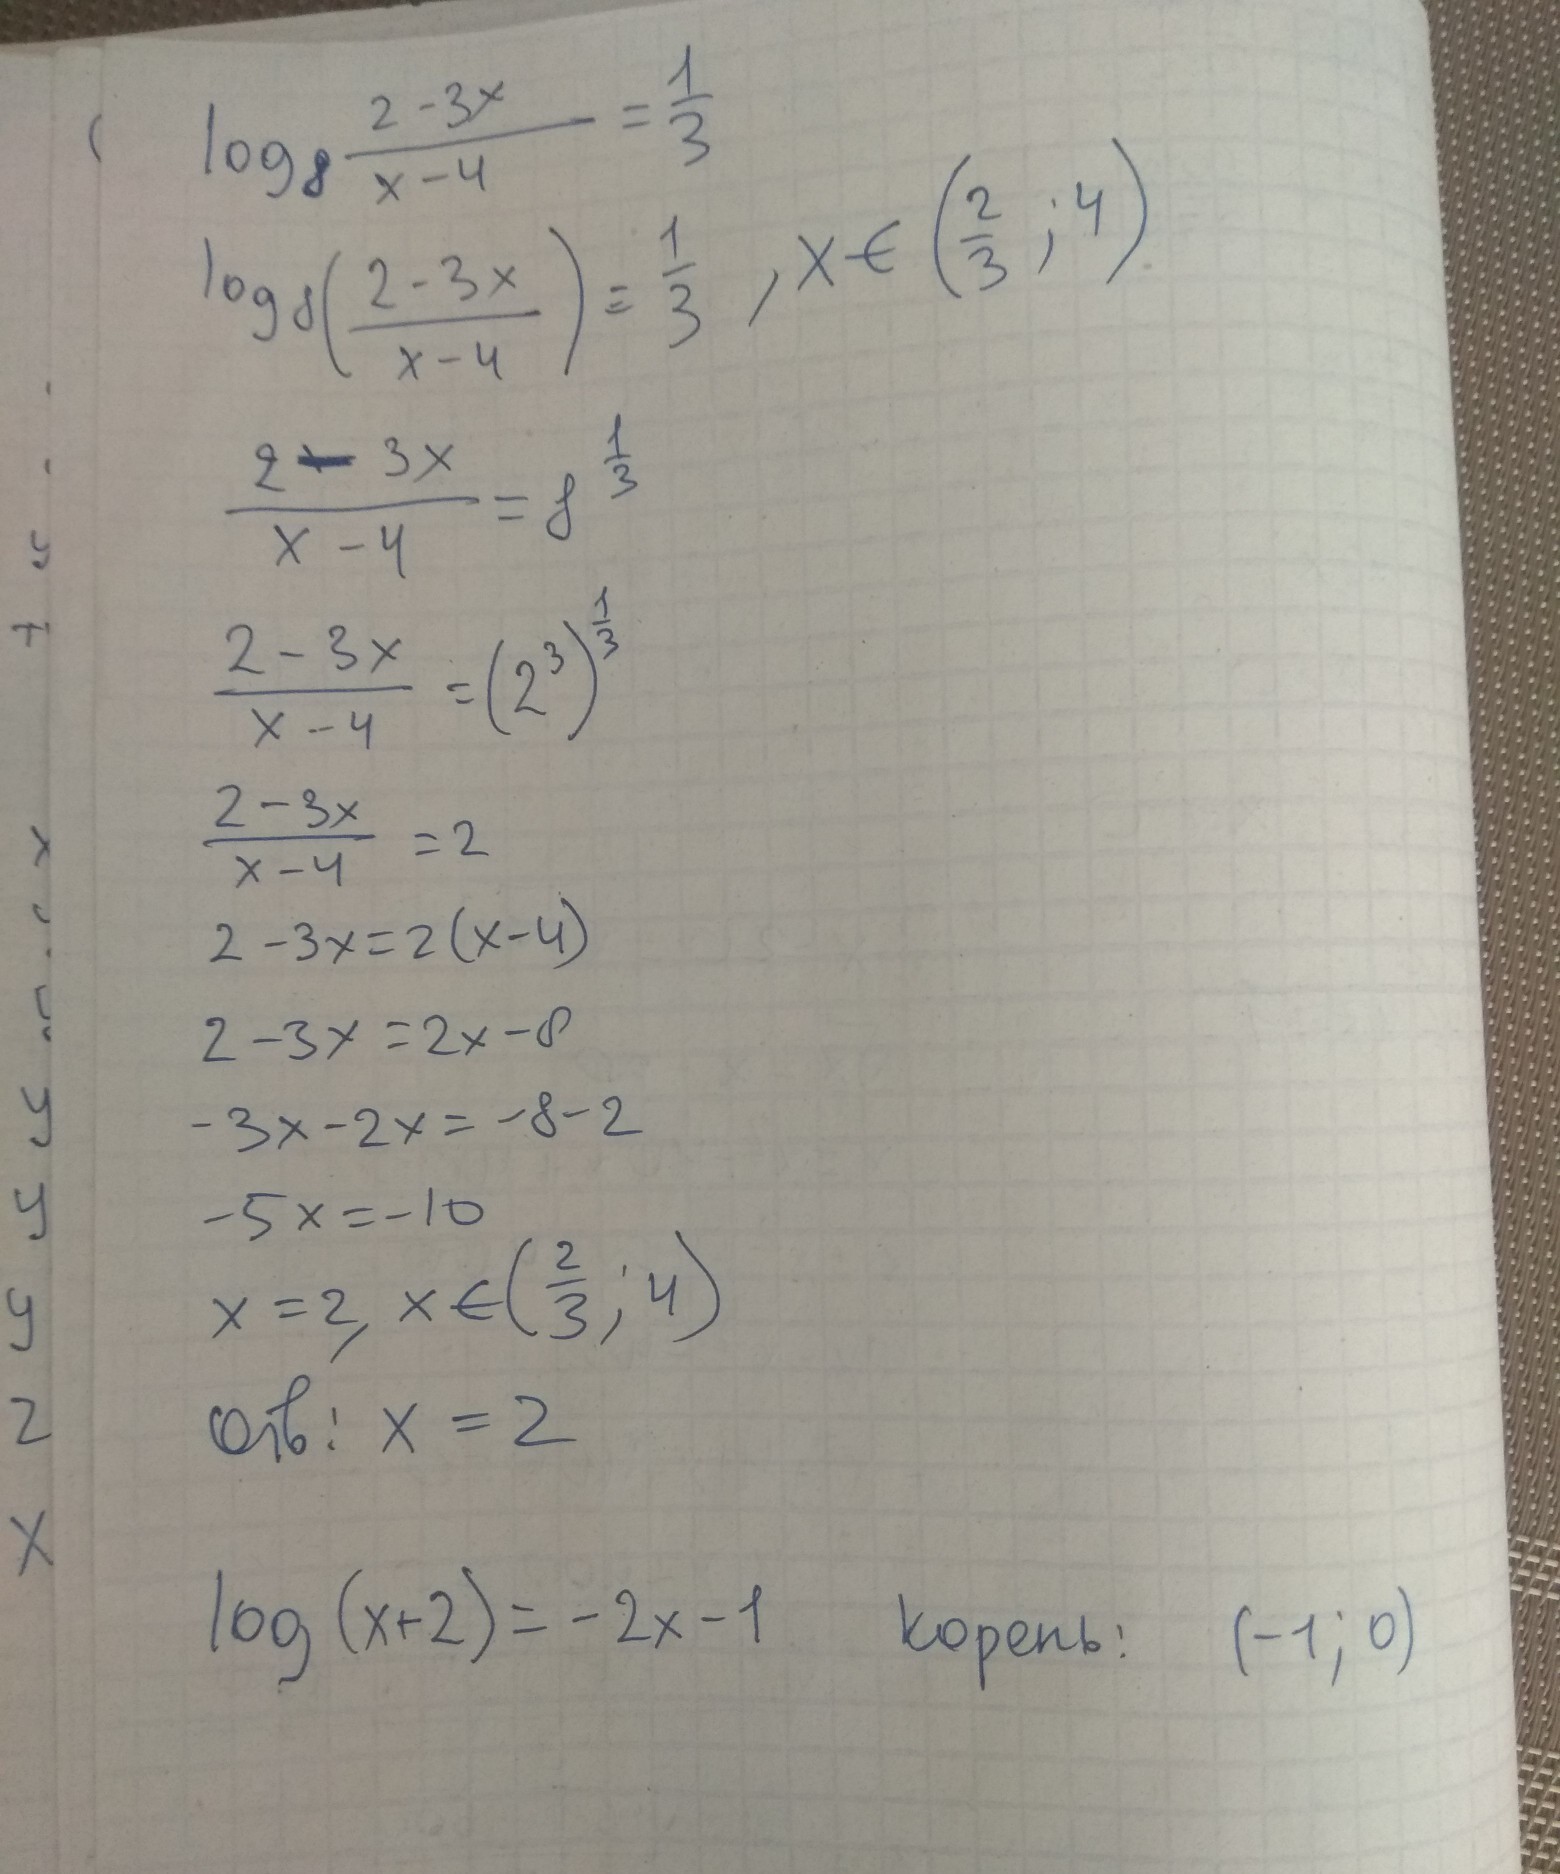 log₈ (2-3x)/(x-4) = 1/3
log₈((2-3x)/(x-4)) = 1/3 , x ∈ (2/3 ; 4)
(2-3x)/(x-4) = 8^(1/3)
(2-3x)/(x-4) = (2³)^(1/3)
(2-3x)/(x-4) = 2
2-3x=2(x-4)
2-3x=2x-8
-3x-2x=-8-2
-5x=-10
x=2, x∈(2/3 ; 4)
Отв: x = 2
log(x+2)=-2x-1 корень: (-1;0)